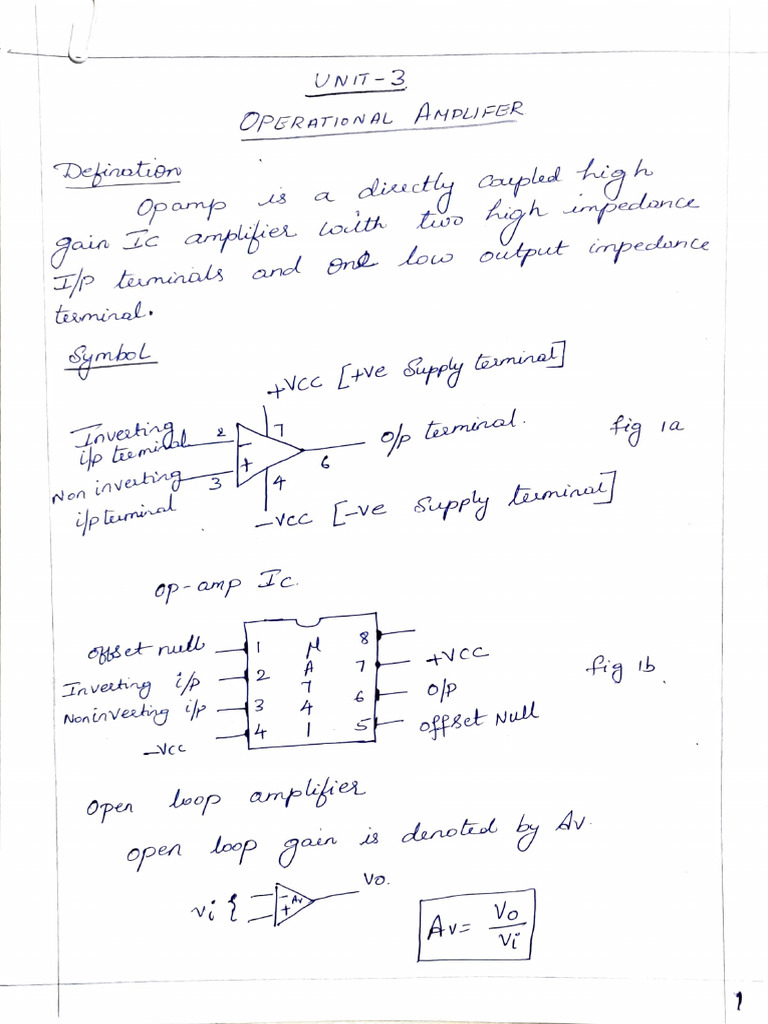 UNIT-3
OPERATIONAL AMPLIFER
Defination
Opamp is a directly coupled high
gain Ic amplifier with two high impedance
I/P terminals and one low output impedance
terminal.
Symbol
+VCC [+ve Supply terminal]
Inverting
i/p terminal
2
7
-
+
6
O/p terminal.
fig 1a
Non inverting
i/p terminal
3
4
-VCC [-ve Supply terminal]
op-amp Ic.
offset null 1 μ 8
Inverting i/p 2 A 7 +VCC
7
fig 1b
Noninverting i/p 3 4 6 O/P
-Vcc 4 1 5 offset Null
Open loop amplifier
open loop gain is denoted by Av.
Vi { - + Av Vo.
Av = Vo/Vi
1